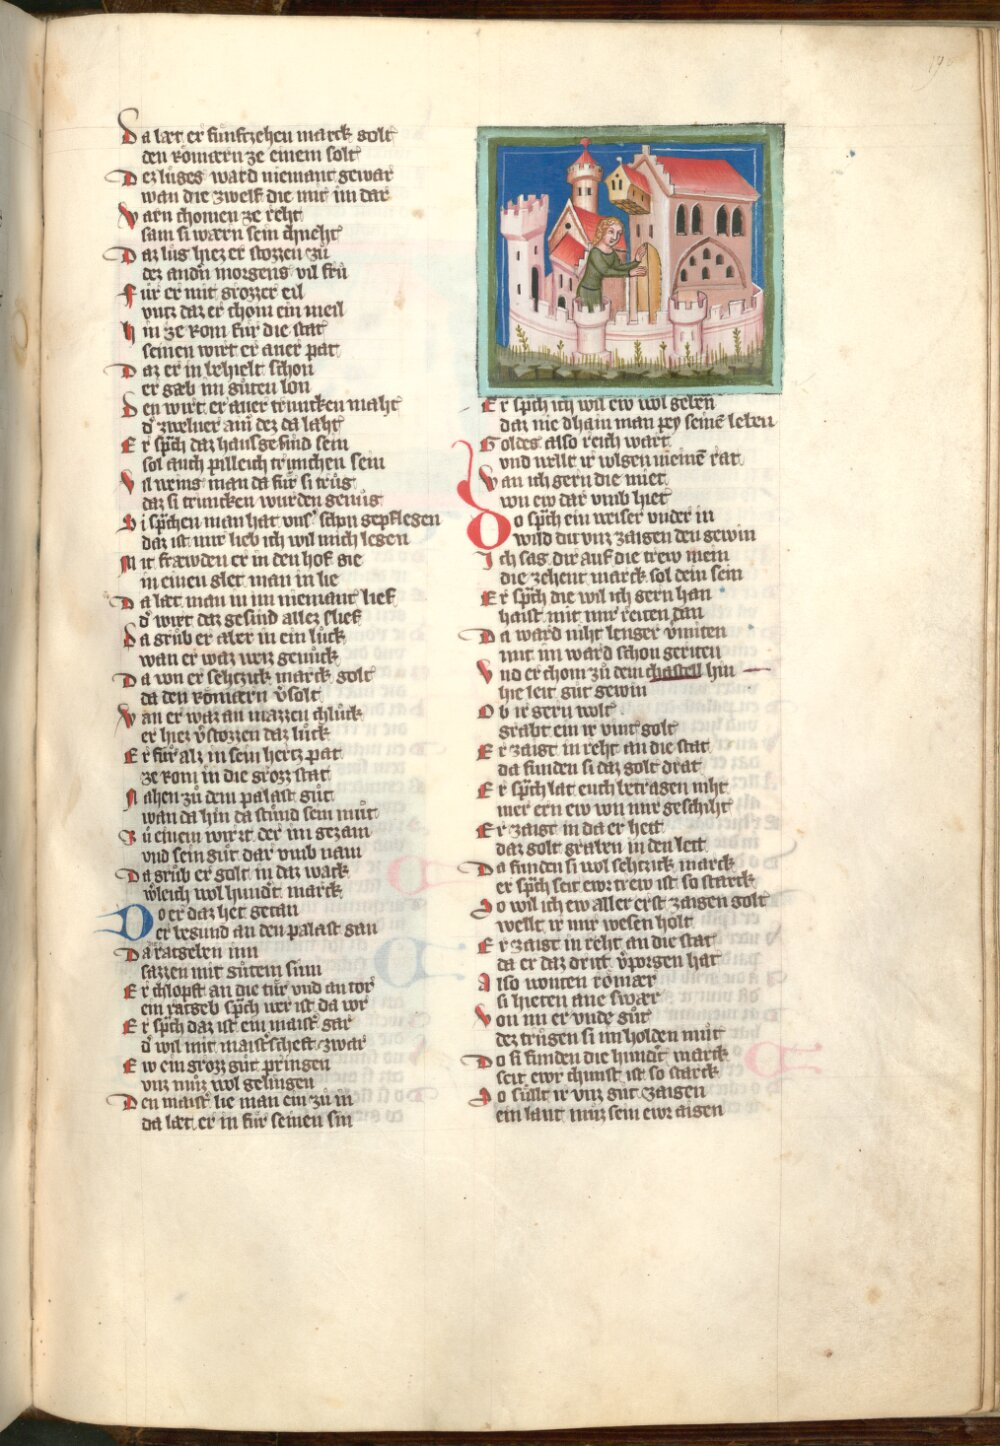 Da lært er fünftzehen marck golt
den Römærn ze einem solt
Dez luges ward niemant gewar
wan die zwelf die mit im dar
Warn chomen ze reht
sam si wærn sein chneht
Daz lüg hiez er stozzen zů
dez andn morgens vil frů
Für er mit grozzer eil
vntz daz er chom ein meil
Hin ze Rom für die stat
seinen wirt er aner pat
Daz er in behielt schon
er gæb im gůten lon
Den wirt er aver trunken maht
d zwelver ain dez da laht
Er sp̃ch daz hausgesind sein
sol auch pilleich trinchen sein
Vil weins man da für si trůg
daz si truncken wurden genůg
Si sp̃chen man hat vns schon gepflegen
daz ist mir lieb ich wil mich legen
Mit fræwden er in den hof gie
in einen glet man in lie
Da læt man in im niemant lief
d wirt daz gesind allez slief
Da grůb er aber in ein luck
wan er waz wez genůck
Da von er sehtzick marck golt
da den Römærn v̓solt
Wan er waz an mazzen chlůck
er hiez v̓stozzen daz lůck
Er für alz in sein hertz pat
ze Rom in die grozz stat
Nahen zů dem palast gůt
wan da hin da stůnd sein můt
Zů einem wirt der im gezam
vnd sein gůt dar vmb nam
Da grůb er golt in daz wack
wleich wol hundt marck
Do er daz het getan
er begund an den palast gan
Da ratgeben inn
sazzen mit gůtem sinn
Er chlopft an die tür vnd an tor
ein ratgeb sp̃ch wer ist da vor
Er sp̃ch daz ist ein maist gar
d wil mit maistscheft zwar
Ew ein grozz gůt pringen
vnz můz wol gelingen
Den maist lie man ein zů in
da læt er in für seinen sin
Er sp̃ch ich wil ew wol geben
daz nie dhain man pey seinē leben
Goldes also reich wart
vnd wellt ir volgen meinē rat
Wan ich gern die miet
von ew dar vmb hiet
Do sp̃ch ein weiser vnder in
wild du vnz zaigen den gewin
Ich sag dir auf die trew mein
die zehent marck sol dein sein
Er sp̃ch die wil ich gern han
haist mit mir reiten dan
Da ward niht lenger v̓miten
mit im ward schon geriten
Vnd er chom zů dem chastell hin
hie leit gůt gewin
Ob ir gern wolt
grabt ein ir vint golt
Er zaigt in reht an die stat
da funden si daz golt drat
Er sp̃ch lat euch betragen niht
mer ern ew von mir geschiht
Er zaigt in da er hett
daz golt graben in den lett
Da funden si wol sehtzick marck
er sp̃ch seit ewr trew ist so starck
So wil ich ew aller erst zaigen golt
wellt ir mir wesen holt
Er zaigt in reht an die stat
da er daz dritt v̓porgen hat
Also wonten Römær
si hieten ane swær
Von im er vnde gůt
dez trůgen si im holden můt
Do si funden die hundt marck
seit ewr chunst ist so starck
So süllt ir vnz gůt zaigen
ein lant můz sein ewr aigen